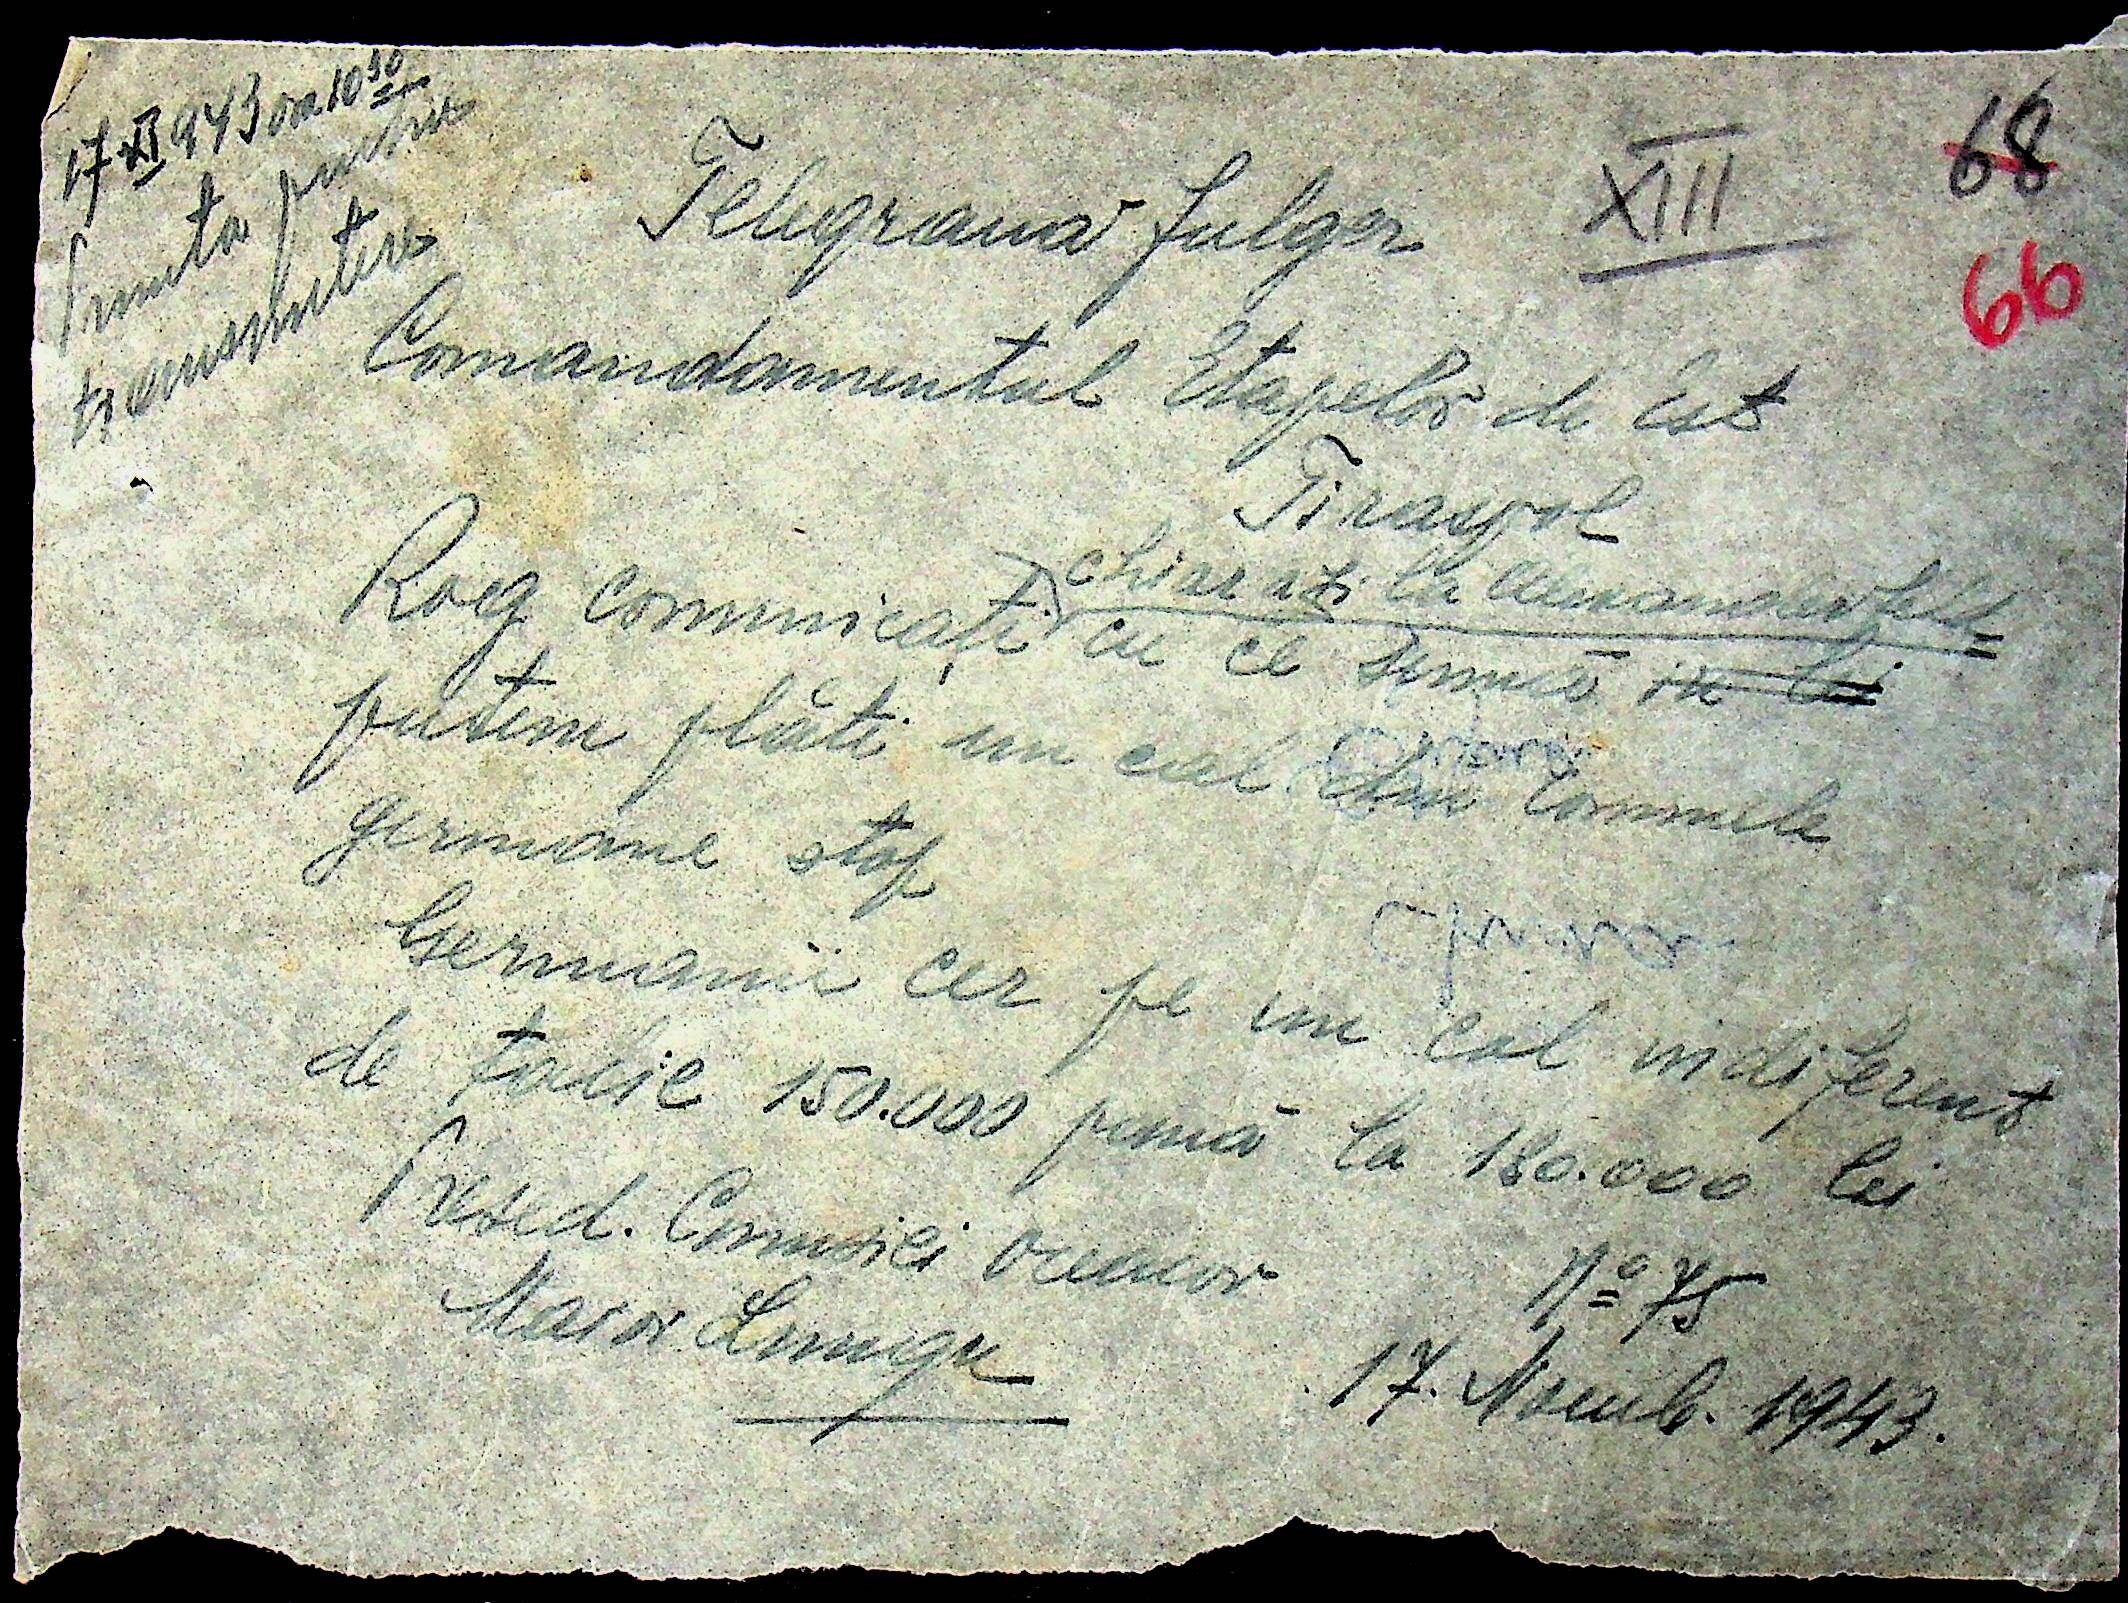 17 XI 943 ora 10³⁰
Primita pentru
transmitere
XIII
68
66
Telegramă fulger
Comandamentul Etapelor de Est
Tiraspol
chiar azi la
Rog comunicați cu ce sumă in lei
putem plăti un cal din Comunele
germane stop
Germanii cer pe un cal indiferent
de talie 150.000 pană la 180.000 lei
Presed. Comisiei
Maior
Nº 75
17. Noemb. 1943.